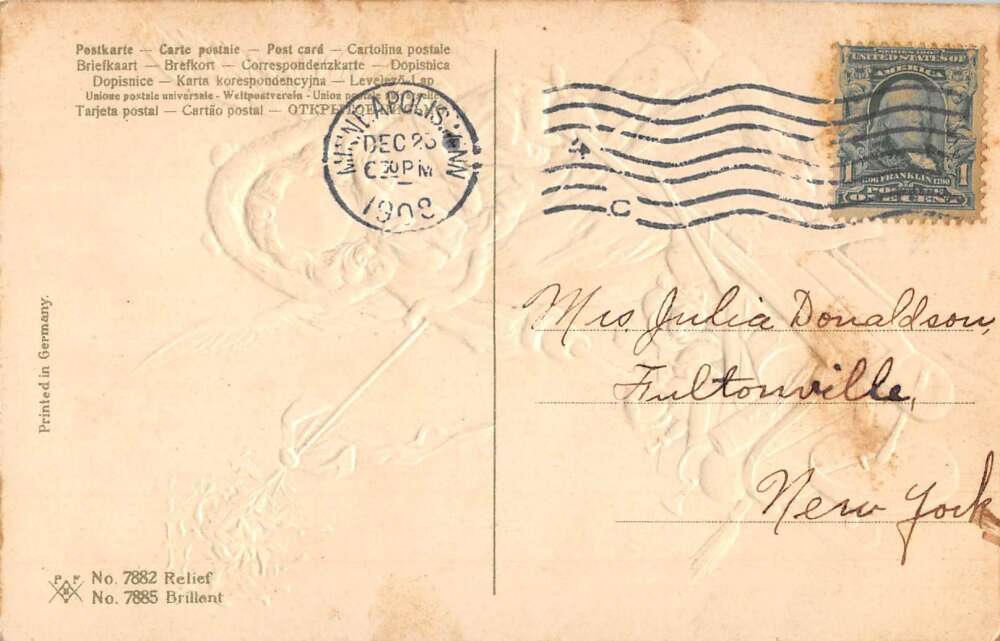 Postkarte — Carte postale — Post card — Cartolina postale
Briefkaart — Brefkort — Correspondenzkarte — Dopisnica
Dopisnice — Karta korespondencyjna — Levelező-Lap
Unione postale universale - Weltpostverein - Union postale universelle
Tarjeta postal — Cartão postal —
MINNEAPOLIS, MINN
DEC 23
6 30 PM
1908
4
C
UNITED STATES OF
AMERICA
1706 FRANKLIN 1790
1 POSTAGE 1
ONE CENT
Mrs. Julia Donaldson,
Fultonville,
New York
Printed in Germany.
P F B
No. 7882 Relief
No. 7885 Brillant